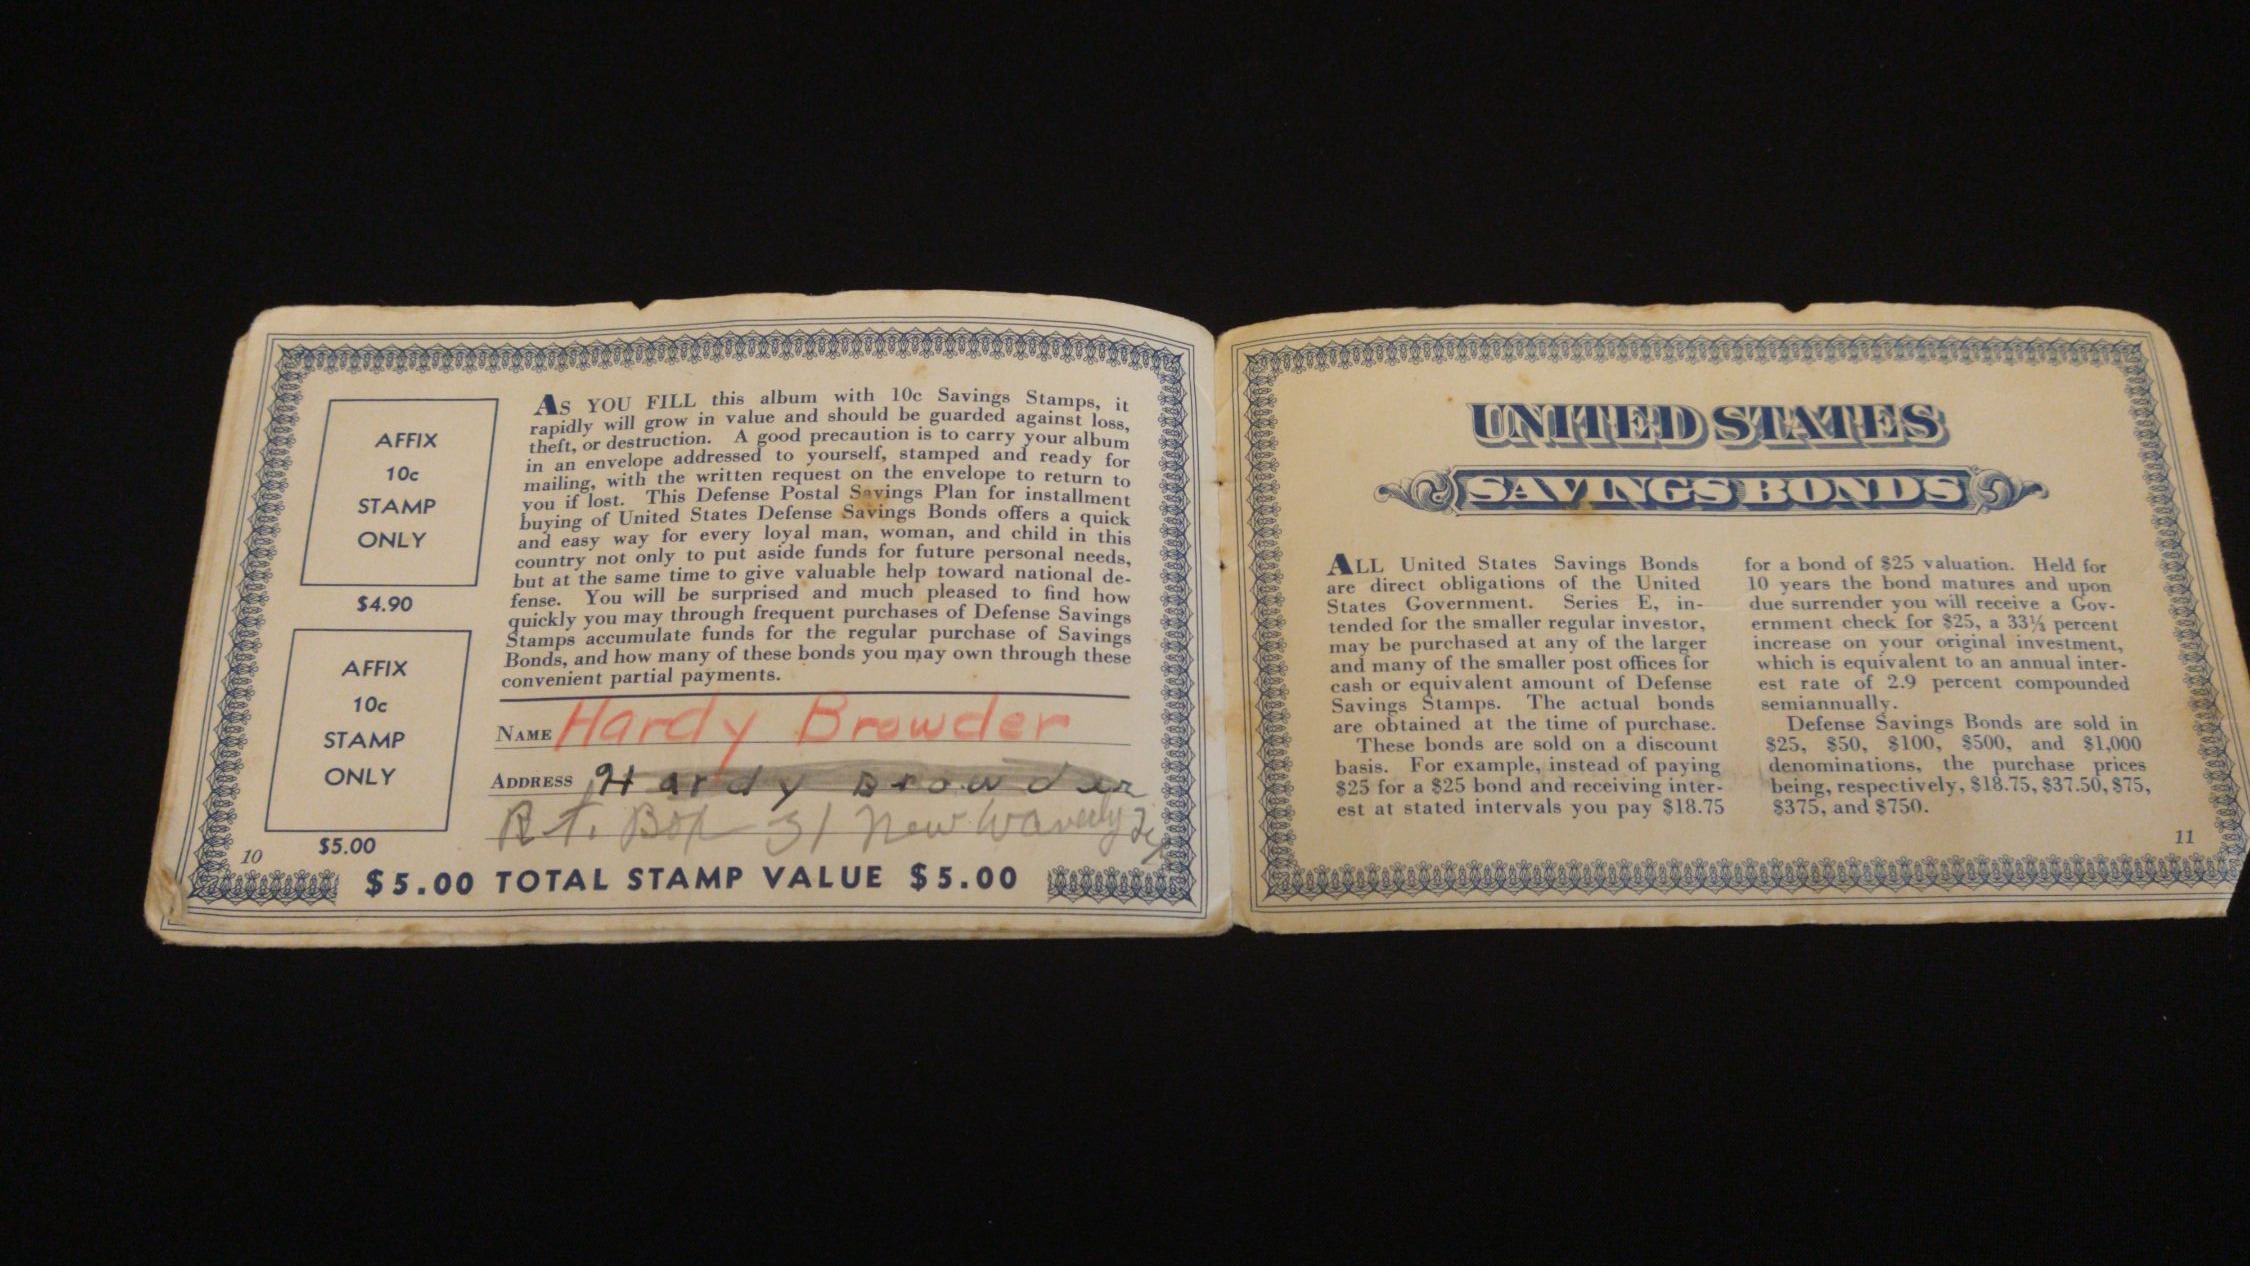 AFFIX
10c
STAMP
ONLY
$4.90
AFFIX
10c
STAMP
ONLY
$5.00
10
AS YOU FILL this album with 10c Savings Stamps, it
rapidly will grow in value and should be guarded against loss,
theft, or destruction. A good precaution is to carry your album
in an envelope addressed to yourself, stamped and ready for
mailing, with the written request on the envelope to return to
you if lost. This Defense Postal Savings Plan for installment
buying of United States Defense Savings Bonds offers a quick
and easy way for every loyal man, woman, and child in this
country not only to put aside funds for future personal needs,
but at the same time to give valuable help toward national de-
fense. You will be surprised and much pleased to find how
quickly you may through frequent purchases of Defense Savings
Stamps accumulate funds for the regular purchase of Savings
Bonds, and how many of these bonds you may own through these
convenient partial payments.
NAME Hardy Browder
ADDRESS Hardy Browder
Rt. Box 31 New Waverly Tex
$5.00 TOTAL STAMP VALUE $5.00
UNITED STATES
SAVINGS BONDS
ALL United States Savings Bonds
are direct obligations of the United
States Government. Series E, in-
tended for the smaller regular investor,
may be purchased at any of the larger
and many of the smaller post offices for
cash or equivalent amount of Defense
Savings Stamps. The actual bonds
are obtained at the time of purchase.
These bonds are sold on a discount
basis. For example, instead of paying
$25 for a $25 bond and receiving inter-
est at stated intervals you pay $18.75
for a bond of $25 valuation. Held for
10 years the bond matures and upon
due surrender you will receive a Gov-
ernment check for $25, a 33⅓ percent
increase on your original investment,
which is equivalent to an annual inter-
est rate of 2.9 percent compounded
semiannually.
Defense Savings Bonds are sold in
$25, $50, $100, $500, and $1,000
denominations, the purchase prices
being, respectively, $18.75, $37.50, $75,
$375, and $750.
11